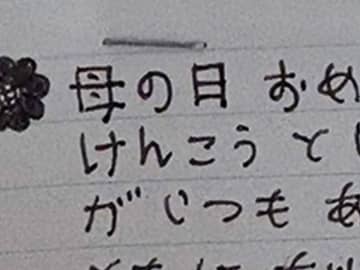 母の日 おめ
けんこうと
がいつも あ